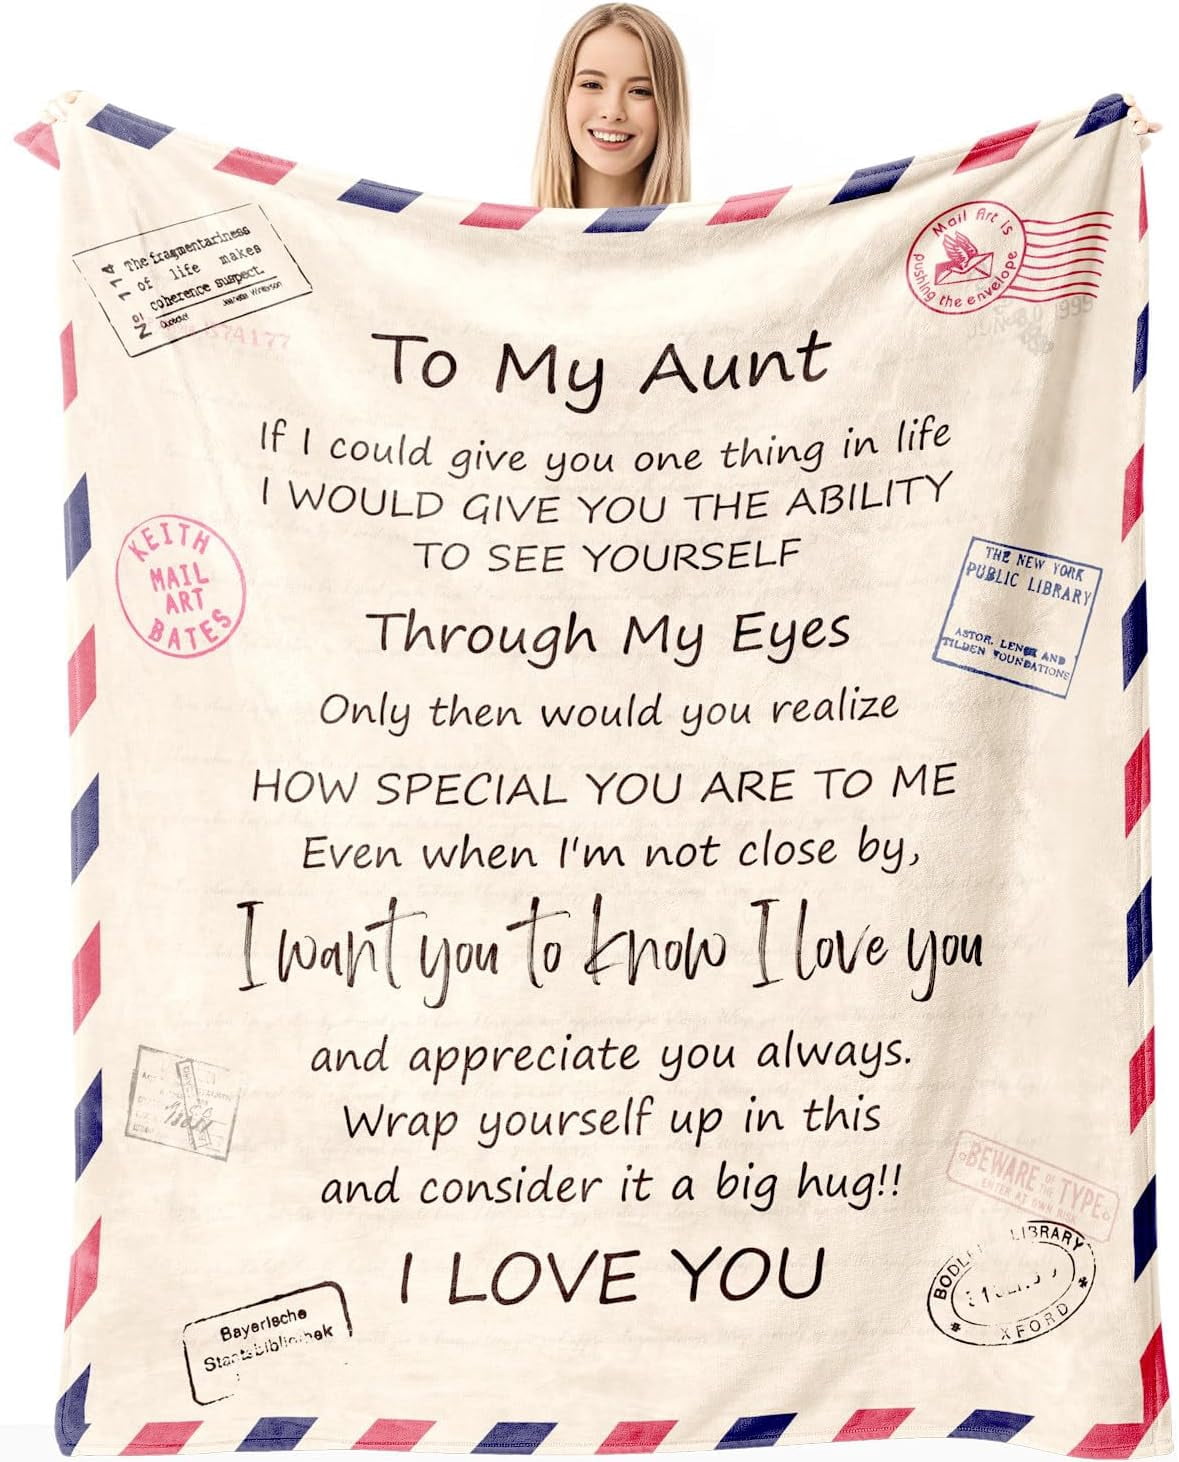 The fragmentariness
of life makes
coherence suspect.
Mail Art is
pushing the envelope
To My Aunt
If I could give you one thing in life
I WOULD GIVE YOU THE ABILITY
TO SEE YOURSELF
KEITH
MAIL
ART
BATES
THE NEW YORK
PUBLIC LIBRARY
ASTOR, LENOX AND
TILDEN FOUNDATIONS
Through My Eyes
Only then would you realize
HOW SPECIAL YOU ARE TO ME
Even when I'm not close by,
I want you to know I love you
and appreciate you always.
Wrap yourself up in this
and consider it a big hug!!
BEWARE OF THE TYPE
ENTER AT OWN RISK
I LOVE YOU
LIBRARY
XFORD
Bayerische
Staatsbibliothek